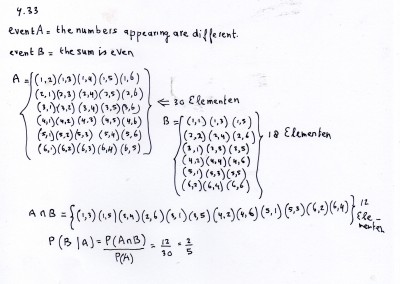 4.33
event A = the numbers appearing are different.
event B = the sum is even
A = {(1,2)(1,3)(1,4)(1,5)(1,6)
(2,1)(2,3)(2,4)(2,5)(2,6)
(3,1)(3,2)(3,4)(3,5)(3,6)
(4,1)(4,2)(4,3)(4,5)(4,6)
(5,1)(5,2)(5,3)(5,4)(5,6)
(6,1)(6,2)(6,3)(6,4)(6,5)} ⇐ 30 Elementen
B = {(1,1)(1,3)(1,5)
(2,2)(2,4)(2,6)
(3,1)(3,3)(3,5)
(4,2)(4,4)(4,6)
(5,1)(5,3)(5,5)
(6,2)(6,4)(6,6)} 18 Elementen
A ∩ B = {(1,3)(1,5)(2,4)(2,6)(3,1)(3,5)(4,2)(4,6)(5,1)(5,3)(6,2)(6,4)} 12 Ele-
menten
P(B|A) = P(A∩B)/P(A) = 12/30 = 2/5